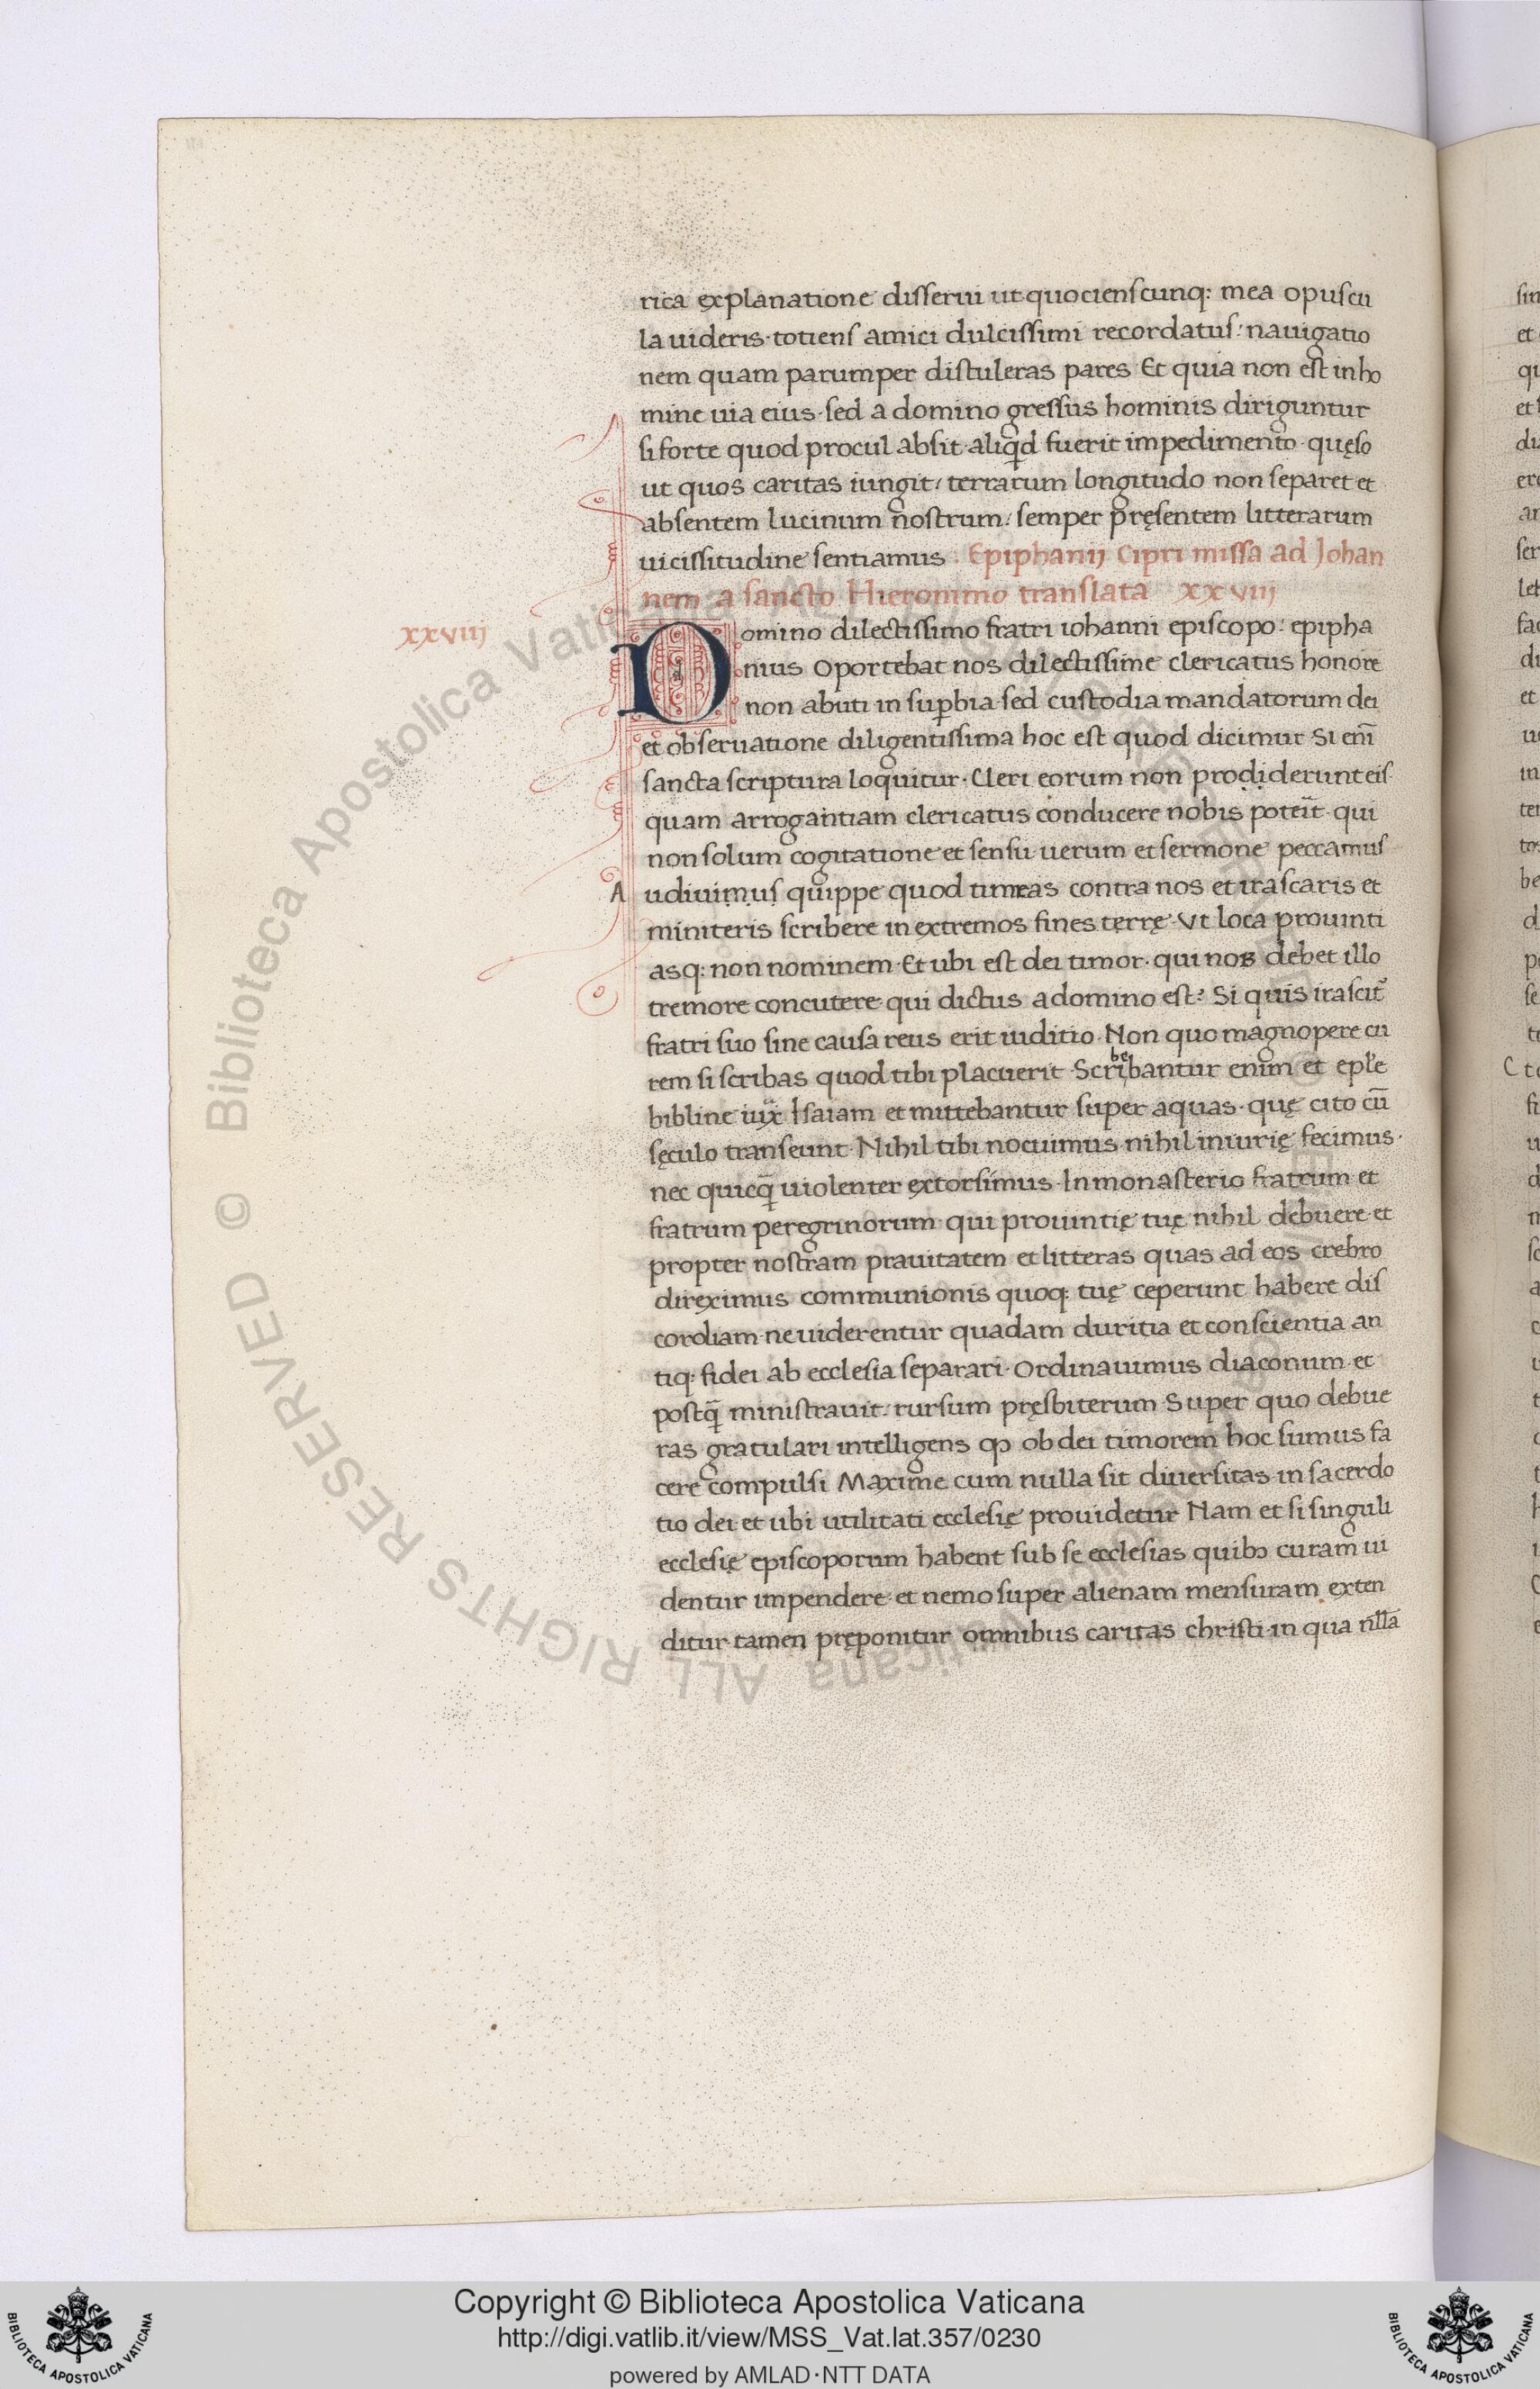 rica explanatione disserui ut quocienscunq: mea opuscu
la uideris· totiens amici dulcissimi recordatus: nauigatio
nem quam parumper distuleras pares Et quia non est in ho
mine uia eius· sed a domino gressus hominis diriguntur
si forte quod procul absit· aliqd̄ fuerit impedimento· quęso
ut quos caritas iungit/ terrarum longitudo non separet et
absentem lucinum nostrum: semper pręsentem litterarum
uicissitudine sentiamus . Epiphanij Cipri missa ad Johan
nem a sancto Hieronimo translata xxviij
xxviiij
Domino dilectissimo fratri iohanni episcopo: epipha
nius Oportebat nos dilectissime clericatus honore
non abuti in suꝑbia· sed custodia mandatorum dei
et obseruatione diligentissima hoc est quod dicimur Si eni̅
sancta scriptura loquitur· Cleri eorum non prodiderunt eis·
quam arrogantiam clericatus conducere nobis poteīt· qui
non solum cogitatione et sensu uerum et sermone peccamus
Audiuimus quippe quod tumeas contra nos et irascaris et
miniteris scribere in extremos fines terrę· Ut loca prouinti
asq: non nominem· Et ubi est dei timor· qui nos debet illo
tremore concutere· qui dictus a domino est? Si quis irascit᷑
fratri suo sine causa reus erit iuditio· Non quo magnopere cu
rem si scribas quod tibi placuerit· Scribebantur enim et epl̄e
bibline iux̄ Isaiam et mittebantur super aquas· quę cito cū
sęculo transeunt· Nihil tibi nocuimus· nihil iniurię fecimus·
nec quicq̄ uiolenter extorsimus· In monasterio fratrum et
fratrum peregrinorum qui prouintię tuę nihil debuere· et
propter nostram prauitatem et litteras quas ad eos crebro
direximus communionis quoq: tuę ceperunt habere dis
cordiam· ne uiderentur quadam duritia et conscientia an
tiq: fidei ab ecclesia separari· Ordinauimus diaconum et
postq̄ ministrauit: rursum pręsbiterum Super quo debue
ras gratulari intelligens qꝫ ob dei timorem hoc sumus fa
cere compulsi Maxime cum nulla sit diuersitas in sacerdo
tio dei· et ubi utilitati ecclesię prouidetur Nam et si singuli
ecclesię episcoporum habent sub se ecclesias quibꝫ curam ui
dentur impendere· et nemo super alienam mensuram exten
ditur· tamen pręponitur omnibus caritas christi· in qua nll̄a
© Biblioteca Apostolica Vaticana ALL RIGHTS RESERVED
Copyright © Biblioteca Apostolica Vaticana
http://digi.vatlib.it/view/MSS_Vat.lat.357/0230
powered by AMLAD·NTT DATA
BIBLIOTECA APOSTOLICA VATICANA
BIBLIOTECA APOSTOLICA VATICANA